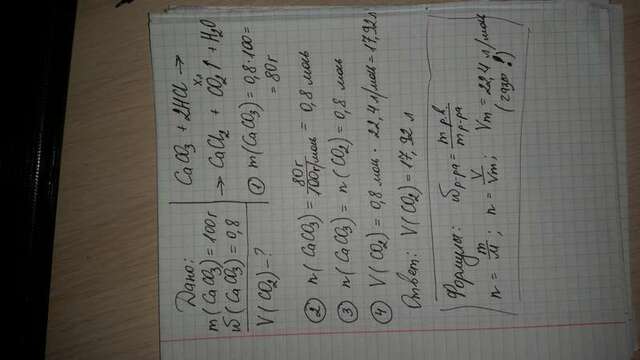 Дано:
m(CaCO₃) = 100г
ω(CaCO₃) = 0,8
V(CO₂) - ?
CaCO₃ + 2HCl →
→ CaCl₂ + CO₂↑ + H₂O
xл
① m(CaCO₃) = 0,8·100 =
= 80г
② n(CaCO₃) = 80г / 100г/моль = 0,8 моль
③ n(CaCO₃) = n(CO₂) = 0,8 моль
④ V(CO₂) = 0,8 моль · 22,4 л/моль = 17,92 л
Ответ: V(CO₂) = 17,92 л
Формулы: ωр-ра = m р.в. / m р-ра
n = m/M; n = V/Vm; Vm = 22,4 л/моль
(газы!)